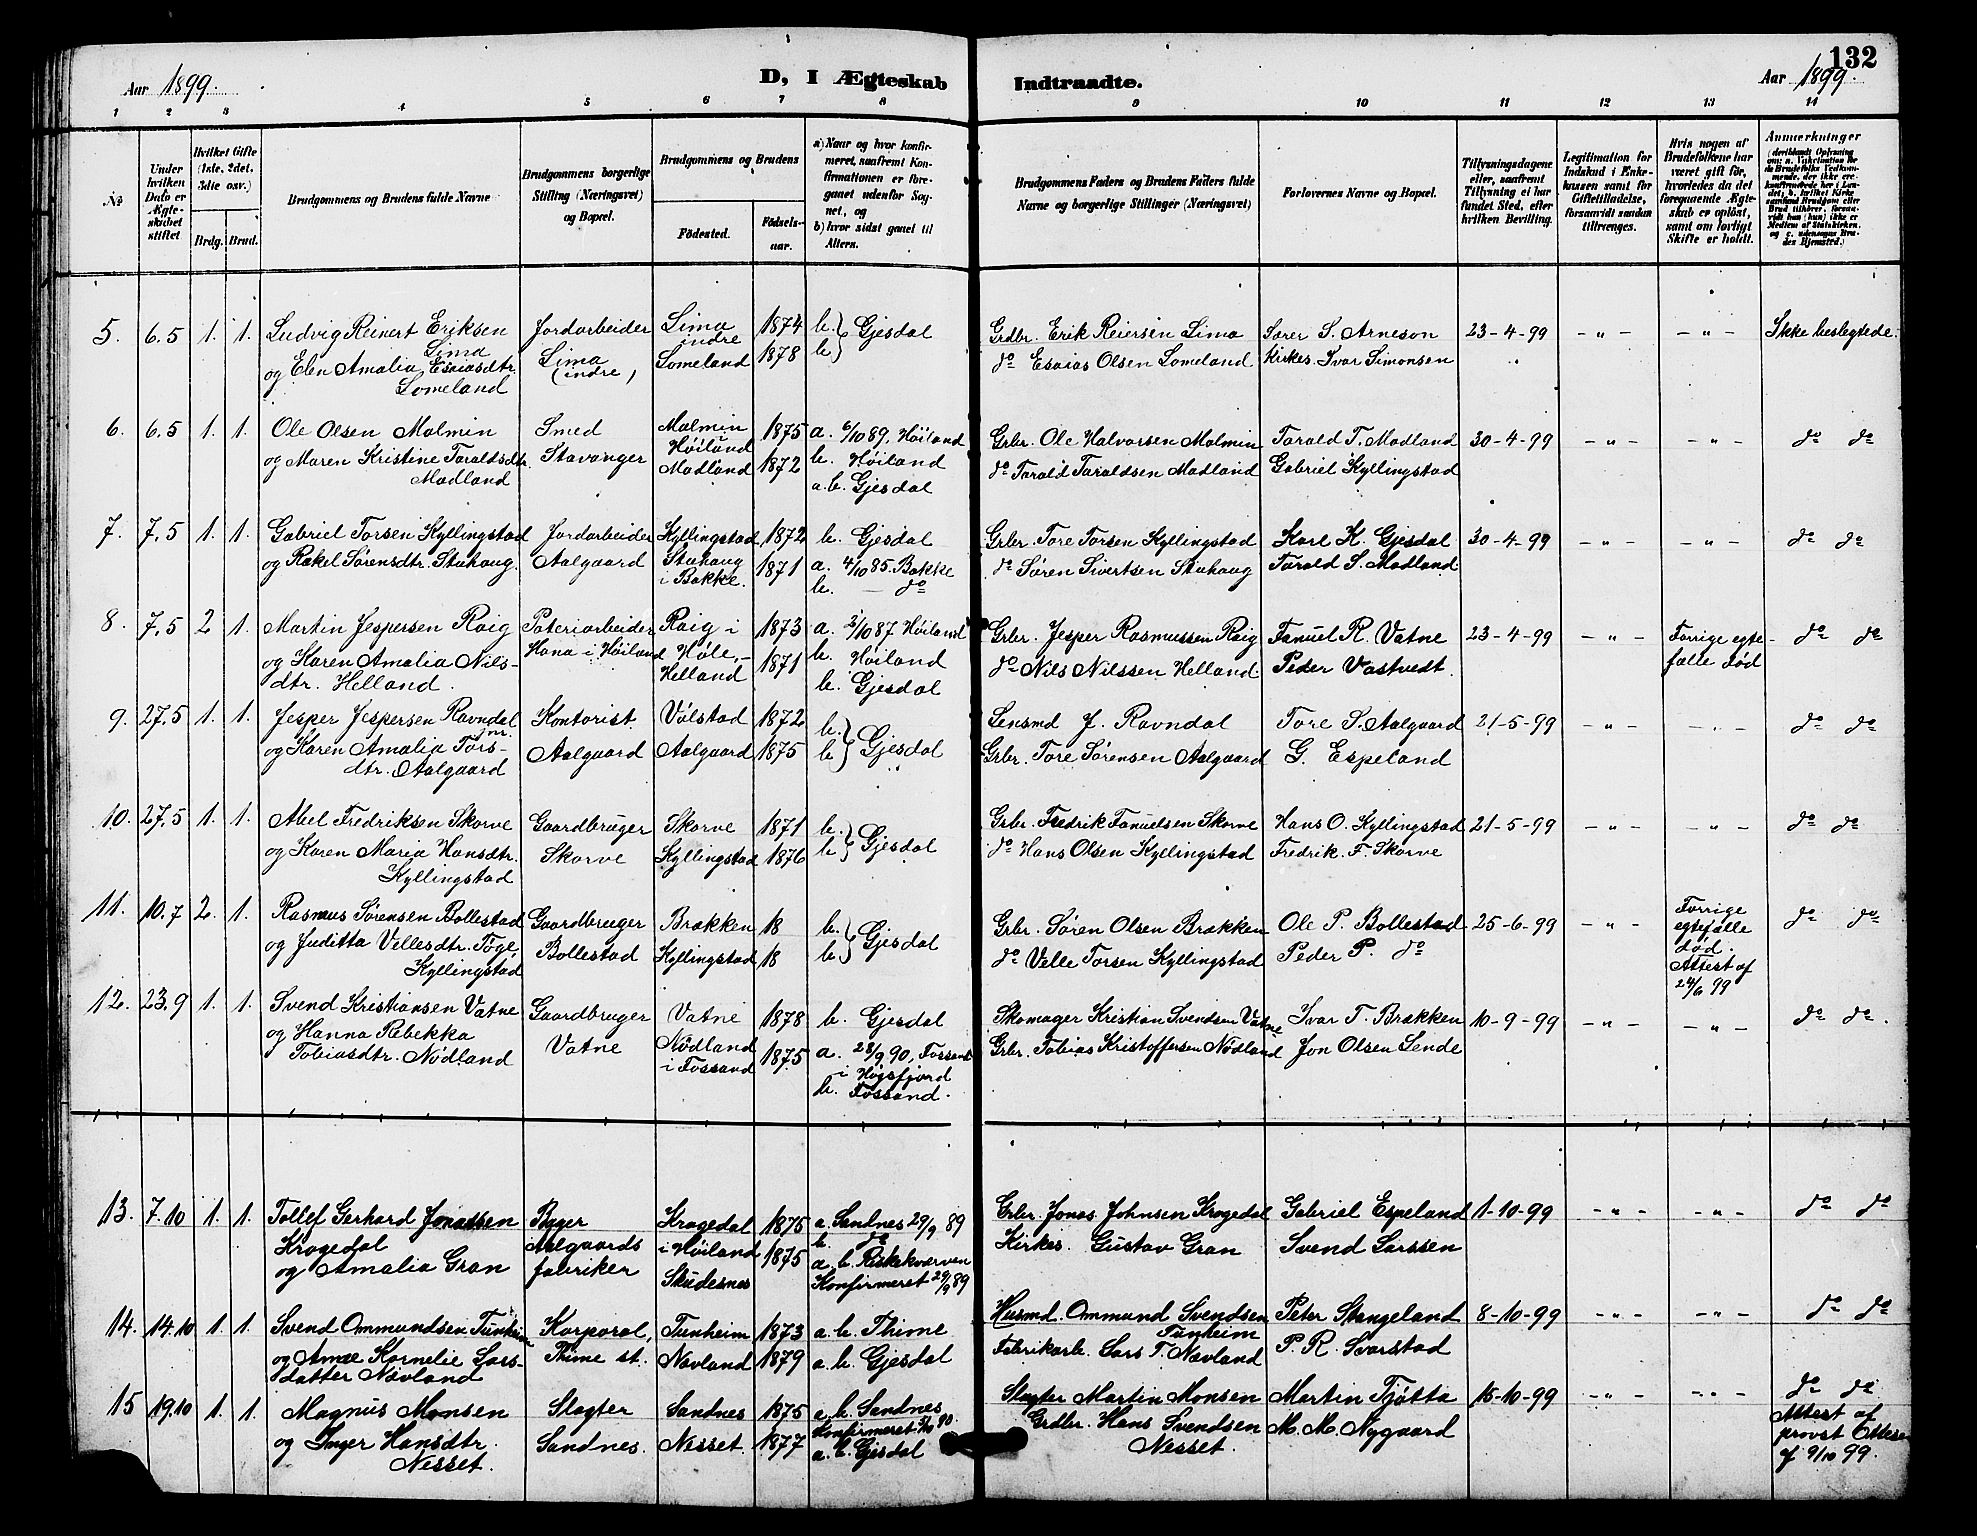 132
Aar 1899.
D, I Ægteskab Indtraadte.
Aar 1899.
1 2 3 4 5 6 7 8 9 10 11 12 13 14
№
Under hvilken Dato er Ægteskabet stiftet
Hvilket Gifte (1ste, 2det, 3die osv.)
Brdg. Brud.
Brudgommens og Brudens fulde Navne
Brudgommens borgerlige Stilling (Næringsvei) og Bopæl.
Brudgommens og Brudens
Fødested.
Fødselsaar.
a) Naar og hvor konfirmeret, saafremt Konfirmationen er foregaaet udenfor Sognet, og
b) hvor sidst gaaet til Alters.
Brudgommens Faders og Brudens Faders fulde Navne og borgerlige Stillinger (Næringsvei)
Forlovernes Navne og Bopæl.
Tillysningsdagene eller, saafremt Tillysning ei har fundet Sted, efter hvilken Bevilling.
Legitimation for Indskud i Enkekassen samt for Giftetilladelse, forsaavidt saadan tiltrænges.
Hvis nogen af Brudefolkene har været gift før, hvorledes da det foregaaende Ægteskab er opløst, samt om lovligt Skifte er holdt.
Anmærkninger
5. 6.5 1. 1. Ludvig Reinert Eriksen Jordarbeider Lima 1874 b. Gjesdal Grdbr. Erik Reiersen Lima Sører S. Arneson 23-4-99 - " - - " - Ikke beslegtede.
Lima Lima indre
og Elen Amalia Esaiasdtr. (indre) Someland 1878 b. do Esaias Olsen Someland Kirkes. Ivar Simonsen
Someland
6. 6.5 1. 1. Ole Olsen Malmin Smed Malmin 1875 a. 6/10 89. Høiland Grbr. Ole Halvorsen Malmin Tarald T. Madland 30-4-99 - " - - " - do do
Høiland
og Maren Kristine Taraldsdtr. Stavanger Madland 1872 b. Høiland do Tarald Taraldsen Madland Gabriel Kyllingstad
Madland a. b. Gjesdal
7. 7.5 1. 1. Gabriel Torsen Kyllingstad Jordarbeider Kyllingstad 1872 b. Gjesdal Grbr. Tore Torsen Kyllingstad Karl K. Gjesdal 30-4-99 - " - - " - do do
og Rakel Sørensdtr. Stuhaug. Aalgaard Stuhaug 1871 a. 4/10 85. Bakke do Søren Sivertsen Stuhaug Tarald S. Madland
i Bakke. b. - do
8. 7.5 2 1. Martin Jespersen Røig Røig i 1873 a. 2/10 87 Høiland Grbr. Jesper Rasmussen Røig Fanuel R. Vatne 23-4-99 - " - Forrige egte- do do
og Karen Amalia Nils- Hana i Høiland Høle, - 1871 b. Høiland do Nils Nilssen Helland Peder Vastvedt. fælle død
dtr. Helland. Helland b. Gjesdal
9. 27.5 1. 1. Jesper Jespersen Ravndal Kontorist Vølstad 1872 b. Gjesdal Lensmd J. Ravndal Tore S. Aalgaard 21-5-99 - " - - " - do do
jnr.
og Karen Amalia Tors- Aalgaard Aalgaard 1875 b. Grbr. Tore Sørensen Aalgaard G. Espeland
dtr. Aalgaard
10. 27.5 1. 1. Abel Fredriksen Skorve Gaardbruger Skorve 1871 b. Gjesdal Grbr. Fredrik Fanuelsen Skorve Hans O. Kyllingstad 21-5-99 - " - - " - do do
og Karen Maria Hansdtr. Skorve Kyllingstad 1876 b. do Hans Olsen Kyllingstad Fredrik. F. Skorve
Kyllingstad
11. 10.7 2. 1. Rasmus Sørensen Bollestad Gaardbruger Brækken 18 b. Gjesdal Grbr. Søren Olsen Brækken Ole P. Bollestad 25-6-99 - " - Forrige egtefælle død. do do
og Juditta Vellesdtr. Bollestad Kyllingstad 18 b. do Velle Torsen Kyllingstad Peder P. do Attest af
Kyllingstad 24/6 99
12. 23.9 1. 1. Svend Kristiansen Vatne Gaardbruger Vatne 1878 b. Gjesdal Skomager Kristian Svendsen Vatne Ivar T. Brækken 10-9-99 - " - - " - do do.
og Hanna Rebekka Vatne Nødland 1875 a. 28/9 90, Fossand Grbr. Tobias Kristoffersen Nødland Jon Olsen Sende
Tobiasdtr. Nødland i Fossand i Høgsfjord
b. Fossand.
13. 7.10 1. 1. Tollef Gerhard Jonassen Krogedal 1875 a. Sandnes 29/9 89 Grbr. Jonas Johnsen Krogedal Gabriel Espeland 1-10-99 - " - - " - do do
Krogedal Aalgaards i Høiland b. do Kirkes. Gustav Gran Svend Larssen
og Amalia Gran fabriker Skudesnes 1875 a. b. Riskekværven
Konfirmeret 29/9 89
14. 14.10 1. 1. Svend Ommundsen Tunheim Korporal, Tunheim 1873 a. b. Thime Husmd. Ommund Svendsen Peter Stangeland 8-10-99 - " - - " - do do
Tunheim
og Amæ Kornelie Lars- Thime st. Navland 1879 a. b. Gjesdal Fabrikarb. Lars T. Navland P. R. Svarstad
datter Navland
15 19.10 1. 1. Magnus Monsen Slagter Sandnes 1875 a. b. Sandnes Slagter Martin Monsen Martin Tjøtta 15-10-99 - " - - " - do do
Konfirmeret
og Inger Hansdtr. Sandnes. Nesset. 1877 a. b. Gjesdal Grdbr. Hans Svendsen M. M. Nygaard Attest af
Nesset. Nesset. provst
af 9/10 99.